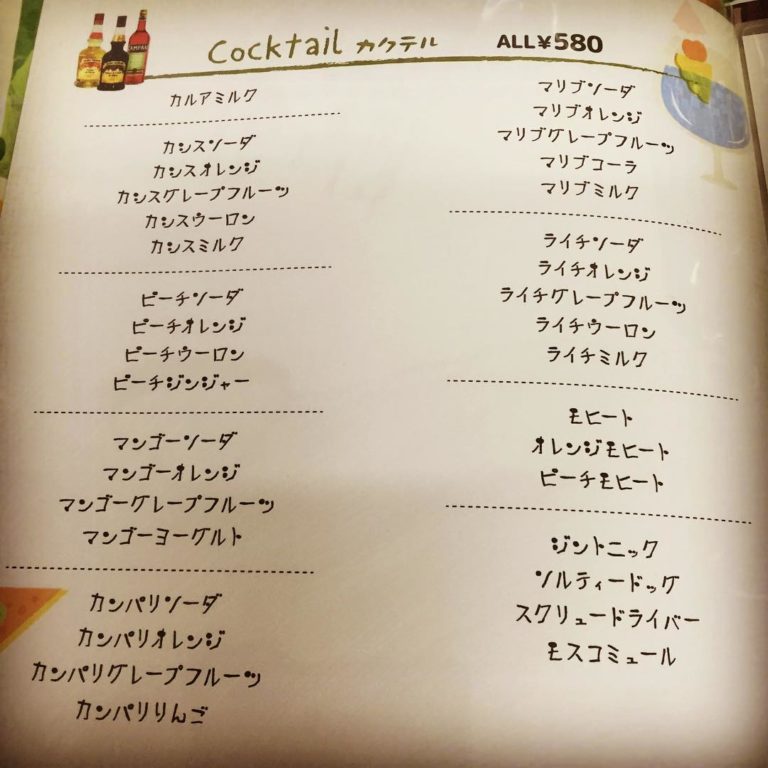 Cocktail カクテル ALL¥580
カルアミルク
カシスソーダ
カシスオレンジ
カシスグレープフルーツ
カシスウーロン
カシスミルク
ピーチソーダ
ピーチオレンジ
ピーチウーロン
ピーチジンジャー
マンゴーソーダ
マンゴーオレンジ
マンゴーグレープフルーツ
マンゴーヨーグルト
カンパリソーダ
カンパリオレンジ
カンパリグレープフルーツ
カンパリりんご
マリブソーダ
マリブオレンジ
マリブグレープフルーツ
マリブコーラ
マリブミルク
ライチソーダ
ライチオレンジ
ライチグレープフルーツ
ライチウーロン
ライチミルク
モヒート
オレンジモヒート
ピーチモヒート
ジントニック
ソルティードッグ
スクリュードライバー
モスコミュール